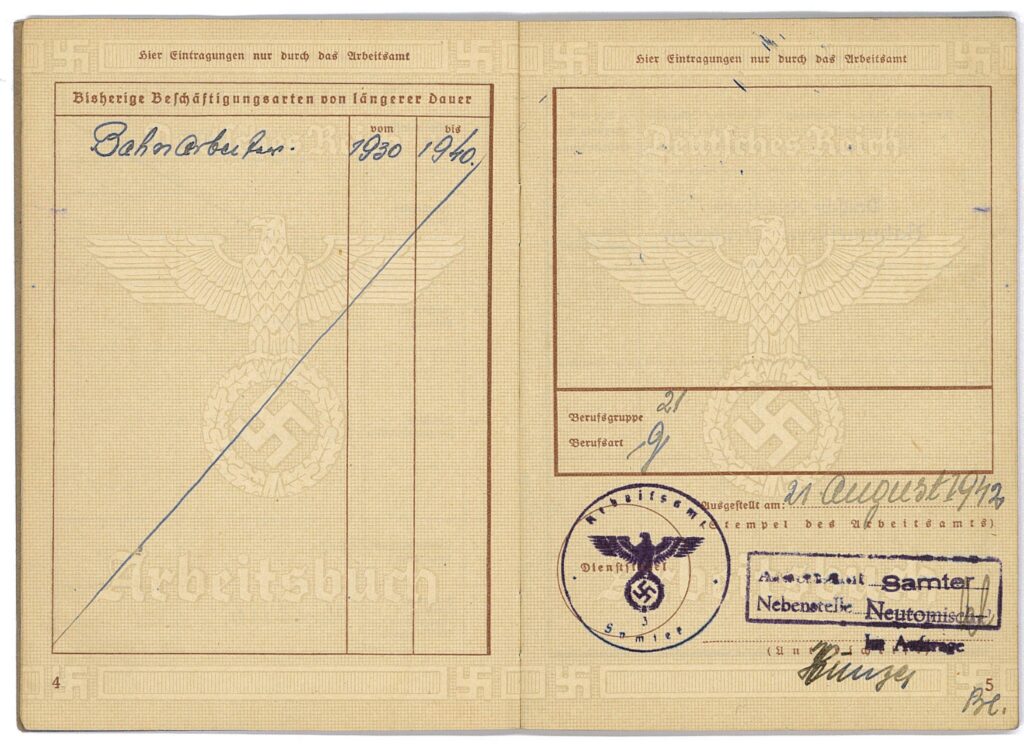 Hier Eintragungen nur durch das Arbeitsamt
Bisherige Beschäftigungsarten von längerer Dauer
vom bis
Bahnarbeiter. 1930 1940.
Arbeitsbuch
4
Hier Eintragungen nur durch das Arbeitsamt
Deutsches Reich
Berufsgruppe 21
Berufsart g
Ausgestellt am: 21 August 1942
(Stempel des Arbeitsamts)
Arbeitsamt
Dienststempel
3
Samter
Arbeitsamt Samter
Nebenstelle Neutomischel
Im Auftrage
(Unterschrift)
5